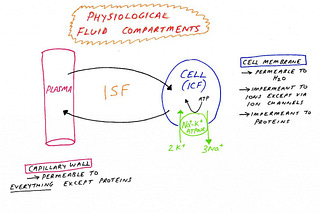 PHYSIOLOGICAL
FLUID COMPARTMENTS
PLASMA
ISF
CELL
(ICF)
ATP
Na+-K+
ATPase
2K+
3Na+
CELL MEMBRANE
→ PERMEABLE TO
H2O
→ IMPERMEANT TO
IONS EXCEPT VIA
ION CHANNELS
→ IMPERMEANT TO
PROTEINS
CAPILLARY WALL
→ PERMEABLE TO
EVERYTHING EXCEPT PROTEINS